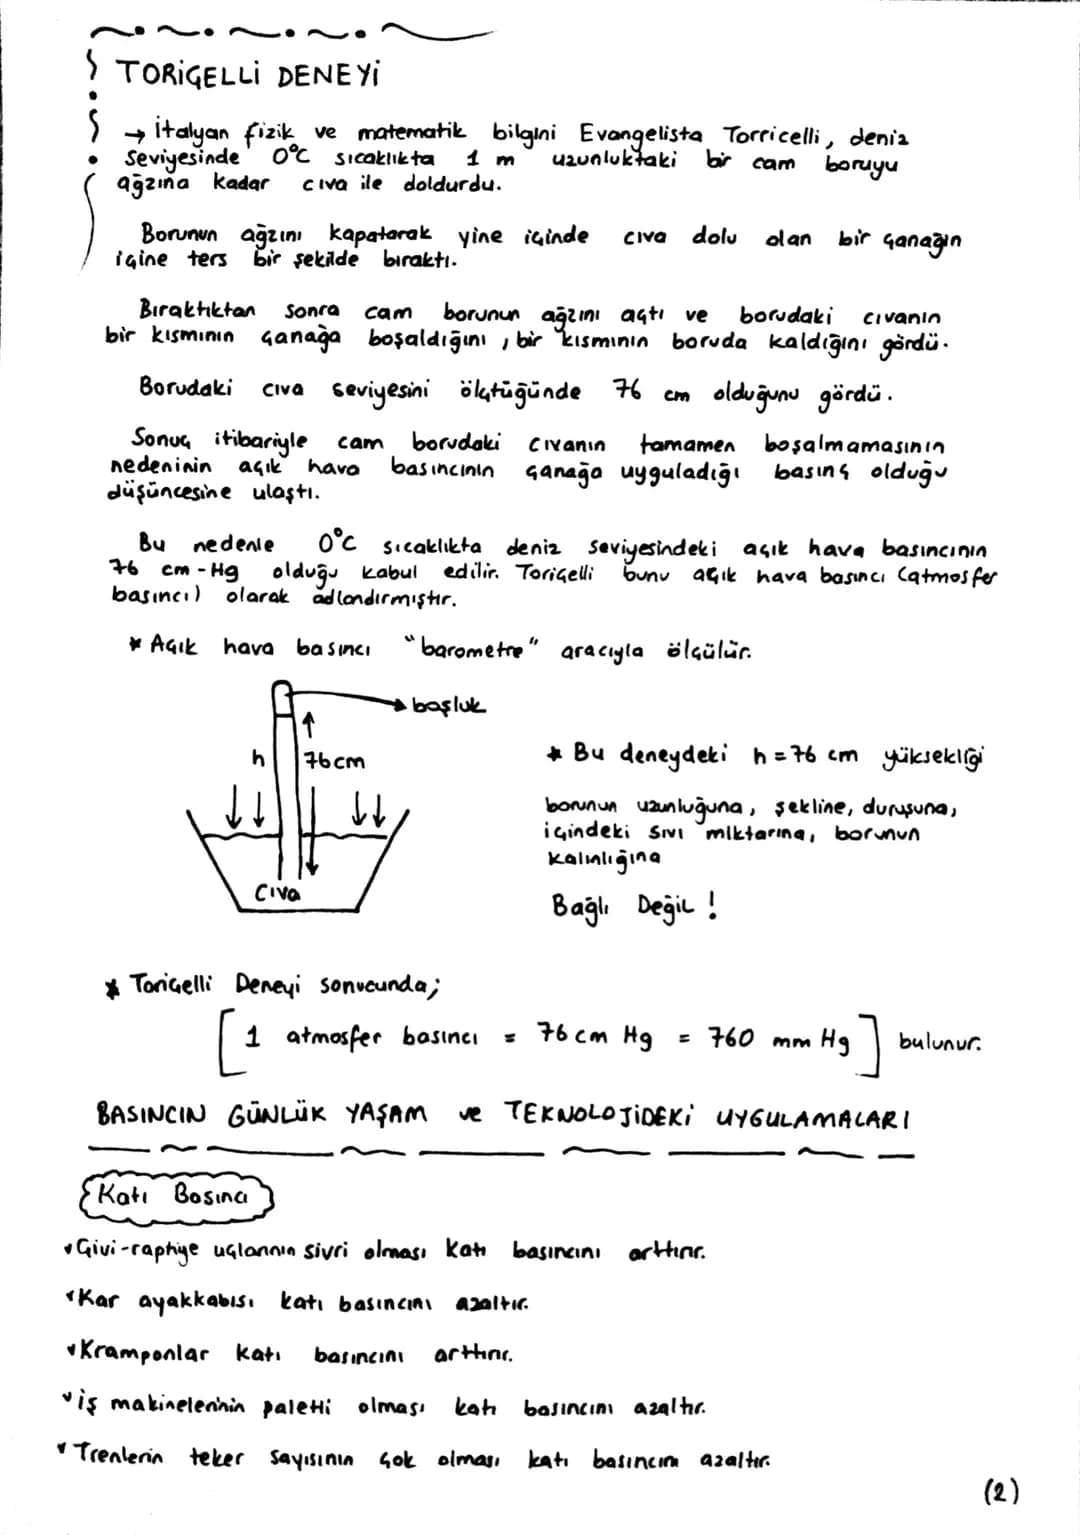 TORİÇELLİ DENEYİ
→ İtalyan fizik ve matematik bilgini Evangelista Torricelli, deniz
seviyesinde 0°C sıcaklıkta 1 m uzunluktaki bir cam boruyu
ağzına kadar cıva ile doldurdu.
Borunun ağzını kapatarak yine içinde cıva dolu olan bir çanağın
içine ters bir şekilde bıraktı.
Bıraktıktan sonra cam borunun ağzını açtı ve borudaki cıvanın
bir kısmının çanağa boşaldığını, bir kısmının boruda kaldığını gördü.
Borudaki cıva seviyesini ölçtüğünde 76 cm olduğunu gördü.
Sonuç itibariyle cam borudaki cıvanın tamamen boşalmamasının
nedeninin açık hava basıncının çanağa uyguladığı basınç olduğu
düşüncesine ulaştı.
Bu nedenle 0°C sıcaklıkta deniz seviyesindeki açık hava basıncının
76 cm-Hg olduğu kabul edilir. Toriçelli bunu açık hava basıncı (atmosfer
basıncı) olarak adlandırmıştır.
* Açık hava basıncı "barometre" aracıyla ölçülür.
boşluk
h 76cm
Cıva
* Bu deneydeki h=76 cm yüksekliği
borunun uzunluğuna, şekline, duruşuna,
içindeki sıvı miktarına, borunun
kalınlığına
Bağlı Değil!
* Toriçelli Deneyi sonucunda;
[1 atmosfer basıncı = 76 cm Hg = 760 mm Hg] bulunur.
BASINCIN GÜNLÜK YAŞAM ve TEKNOLOJİDEKİ UYGULAMALARI
Katı Basıncı
✓Çivi-raptiye uçlarının sivri olması katı basıncını arttırır.
✓Kar ayakkabısı katı basıncını azaltır.
✓Kramponlar katı basıncını arttırır.
✓İş makinelerinin paletli olması katı basıncını azaltır.
✓Trenlerin teker sayısının çok olması katı basıncını azaltır.
(2)